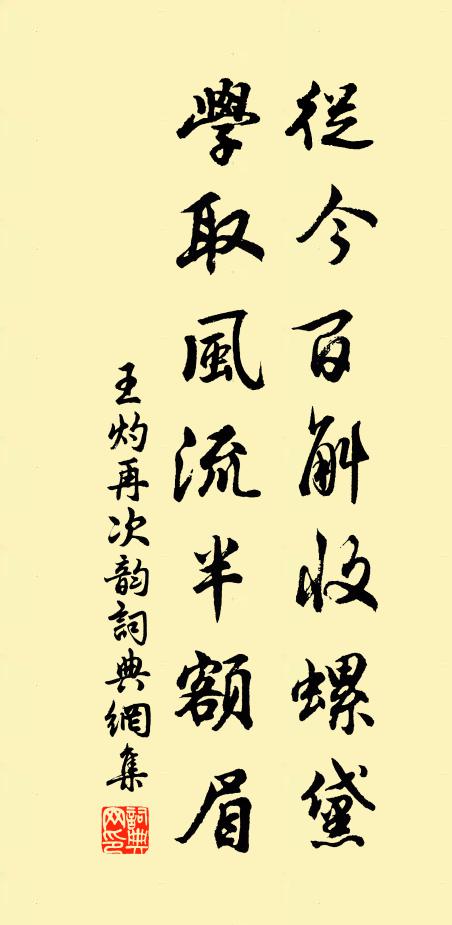 從今百斛收螺黛
學取風流半額眉
王灼再次韵詞典網集
詞典網印